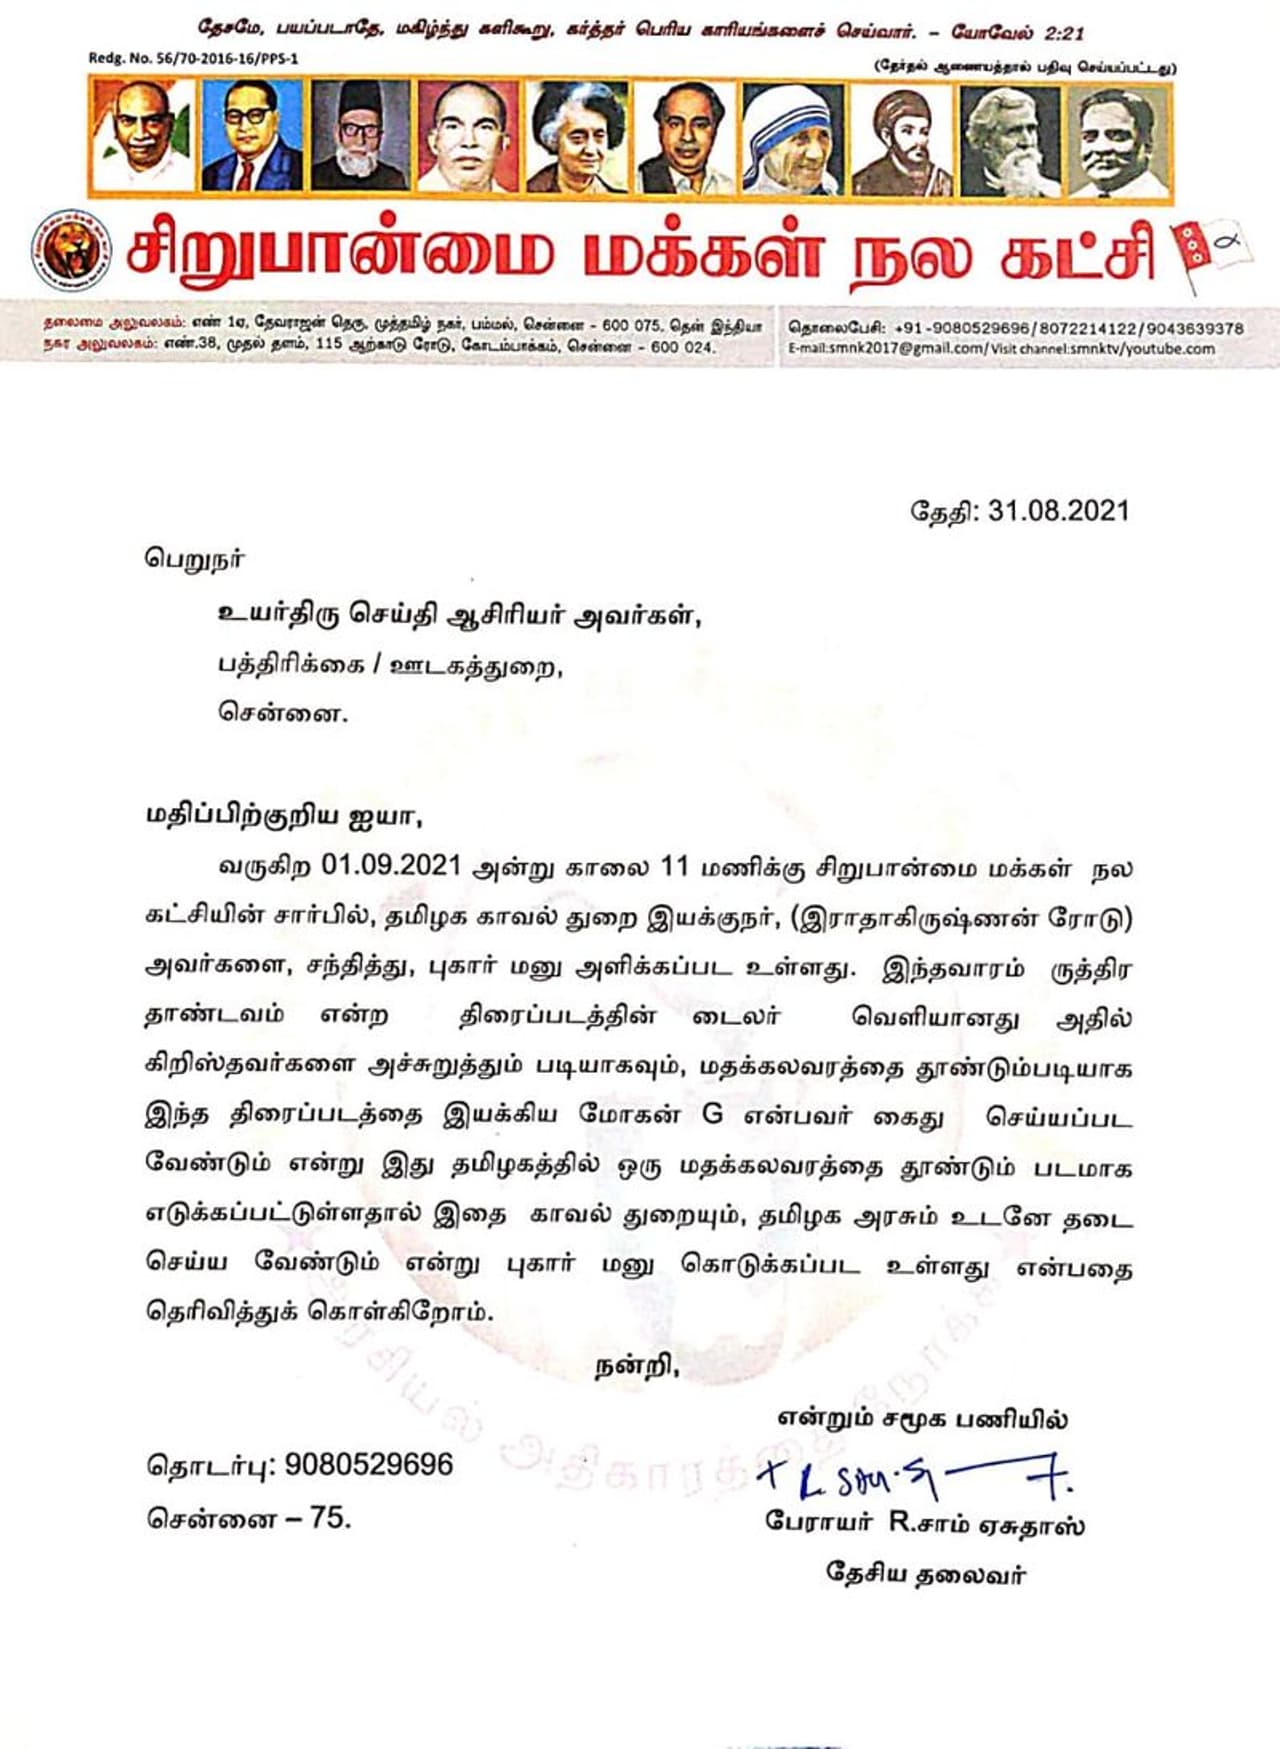 தேசமே, பயப்படாதே, மகிழ்ந்து களிகூறு, கர்த்தர் பெரிய காரியங்களைச் செய்வார். – யோவேல் 2:21
Redg. No. 56/70-2016-16/PPS-1
(தேர்தல் ஆணையத்தால் பதிவு செய்யப்பட்டது)
சிறுபான்மை மக்கள் நல கட்சி
தலைமை அலுவலகம்: எண் 1ஏ, தேவராஜன் தெரு, முத்தமிழ் நகர், பம்மல், சென்னை – 600 075. தென் இந்தியா
நகர அலுவலகம்: எண்.38, முதல் தளம், 115 ஆற்காடு ரோடு, கோடம்பாக்கம், சென்னை – 600 024.
தொலைபேசி: +91-9080529696/8072214122/9043639378
E-mail:smnk2017@gmail.com/Visit channel:smnktv/youtube.com
தேதி: 31.08.2021
பெறுநர்
உயர்திரு செய்தி ஆசிரியர் அவர்கள்,
பத்திரிக்கை / ஊடகத்துறை,
சென்னை.
மதிப்பிற்குறிய ஐயா,
வருகிற 01.09.2021 அன்று காலை 11 மணிக்கு சிறுபான்மை மக்கள் நல
கட்சியின் சார்பில், தமிழக காவல் துறை இயக்குநர், (இராதாகிருஷ்ணன் ரோடு)
அவர்களை, சந்தித்து, புகார் மனு அளிக்கப்பட உள்ளது. இந்தவாரம் ருத்திர
தாண்டவம் என்ற திரைப்படத்தின் டைலர் வெளியானது அதில்
கிறிஸ்தவர்களை அச்சுறுத்தும் படியாகவும், மதக்கலவரத்தை தூண்டும்படியாக
இந்த திரைப்படத்தை இயக்கிய மோகன் G என்பவர் கைது செய்யப்பட
வேண்டும் என்று இது தமிழகத்தில் ஒரு மதக்கலவரத்தை தூண்டும் படமாக
எடுக்கப்பட்டுள்ளதால் இதை காவல் துறையும், தமிழக அரசும் உடனே தடை
செய்ய வேண்டும் என்று புகார் மனு கொடுக்கப்பட உள்ளது என்பதை
தெரிவித்துக் கொள்கிறோம்.
நன்றி,
என்றும் சமூக பணியில்
தொடர்பு: 9080529696
சென்னை – 75.
பேராயர் R.சாம் ஏசுதாஸ்
தேசிய தலைவர்
அரசியல் அதிகாரத்தை நோக்கி